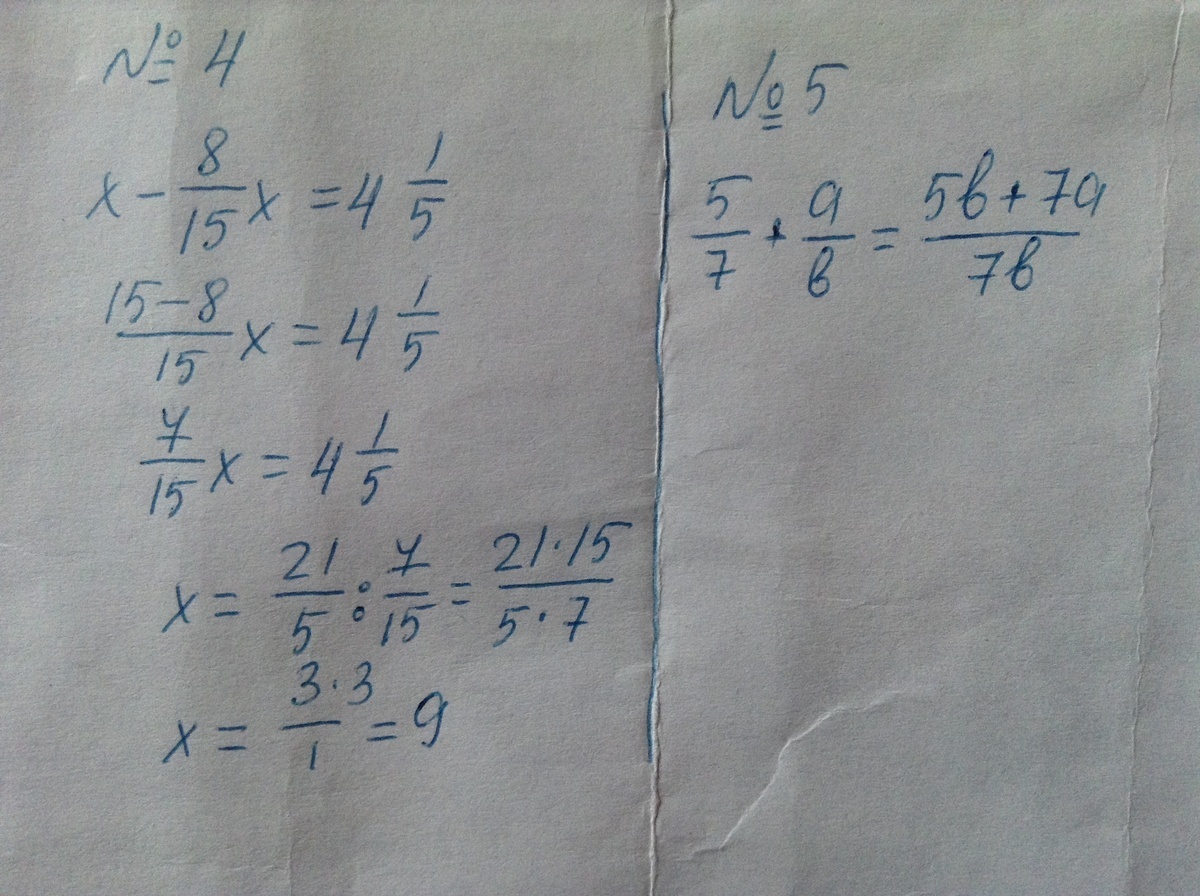 № 4
x - 8/15 x = 4 1/5
15-8/15 x = 4 1/5
7/15 x = 4 1/5
x = 21/5 : 7/15 = 21·15/5·7
x = 3·3/1 = 9
№ 5
5/7 + a/в = 5в+7a/7в